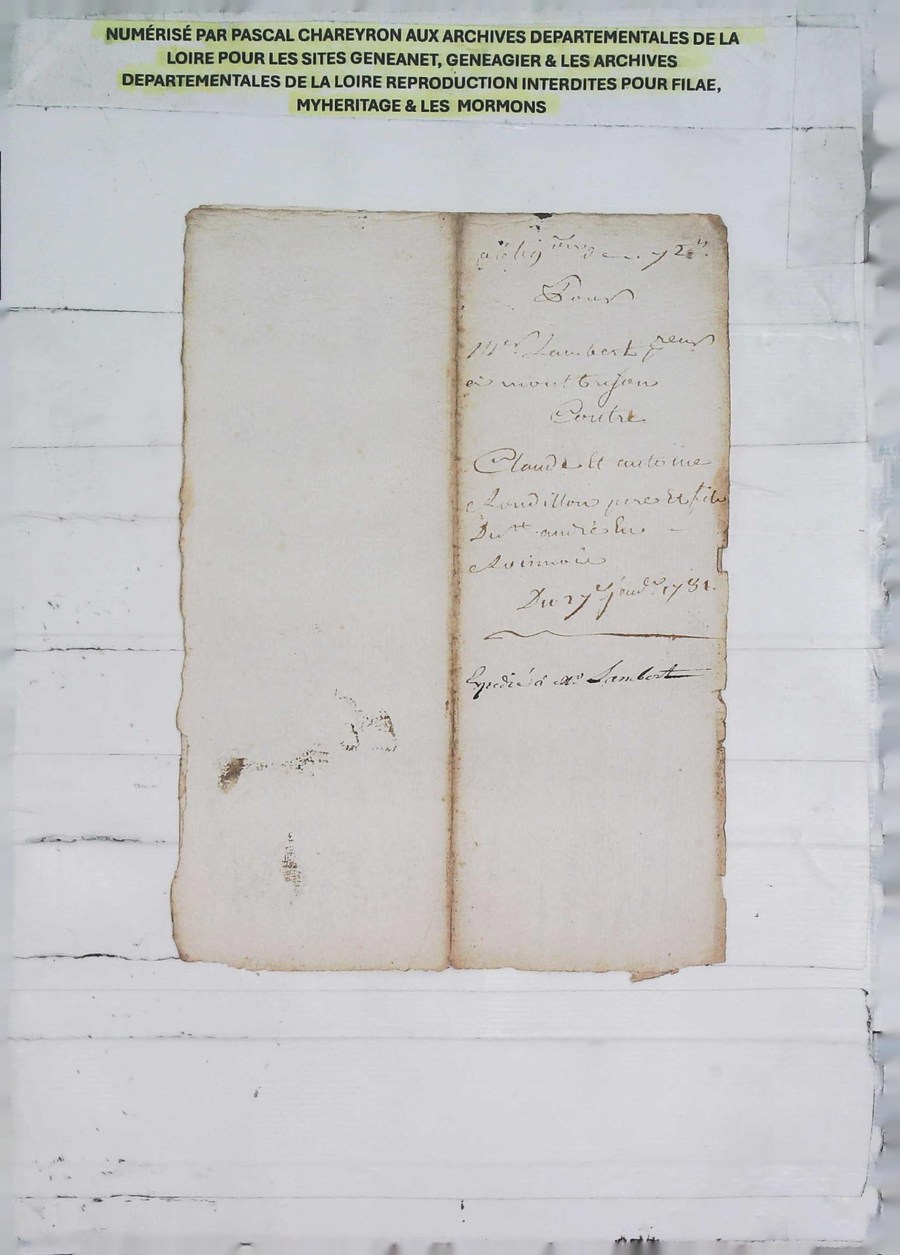 NUMÉRISÉ PAR PASCAL CHAREYRON AUX ARCHIVES DEPARTEMENTALES DE LA
LOIRE POUR LES SITES GENEANET, GENEAGIER & LES ARCHIVES
DEPARTEMENTALES DE LA LOIRE REPRODUCTION INTERDITES POUR FILAE,
MYHERITAGE & LES MORMONS
oblig.on de 72 ₶
Pour
Me Lambert preur
a montbrison
Contre
Claude Et antoine
pere Et fils
andré En
Du 27e janv. 1781.
Expedié a Me Lambert